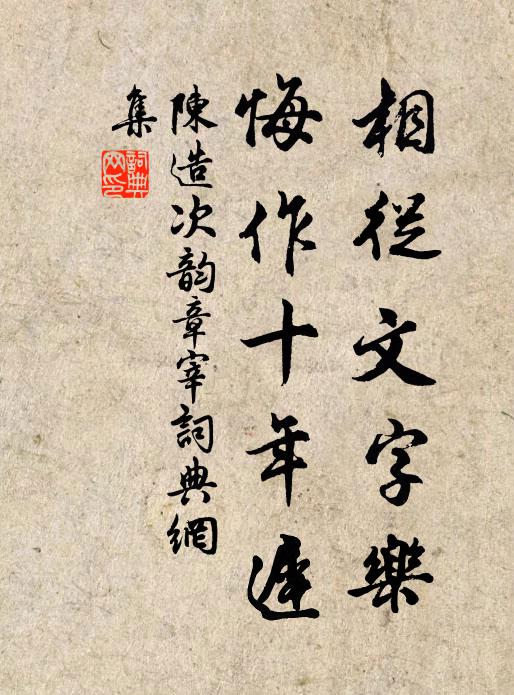 相從文字樂
悔作十年遲
陳造次韵章宰詞典網
集
詞典
网印